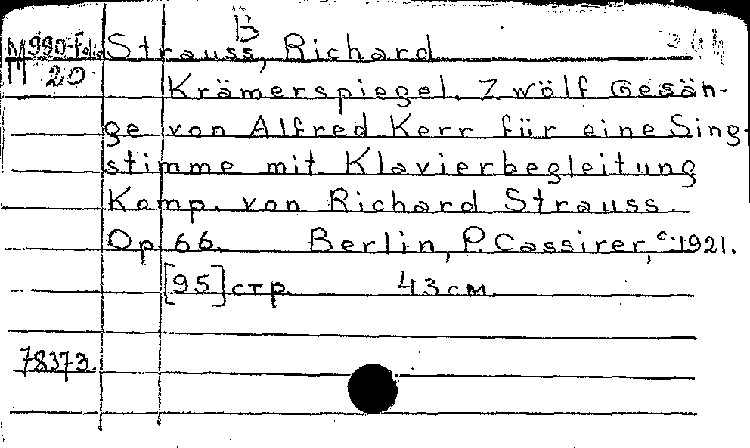 B
M 990-Folio Strauss, Richard
20
Krämerspiegel. Zwölf Gesän-
ge von Alfred Kerr für eine Sing-
stimme mit Klavierbegleitung
Komp. von Richard Strauss.
Op 66. Berlin, P. Cassirer, c.1921.
[95] стр. 43 см.
78373.